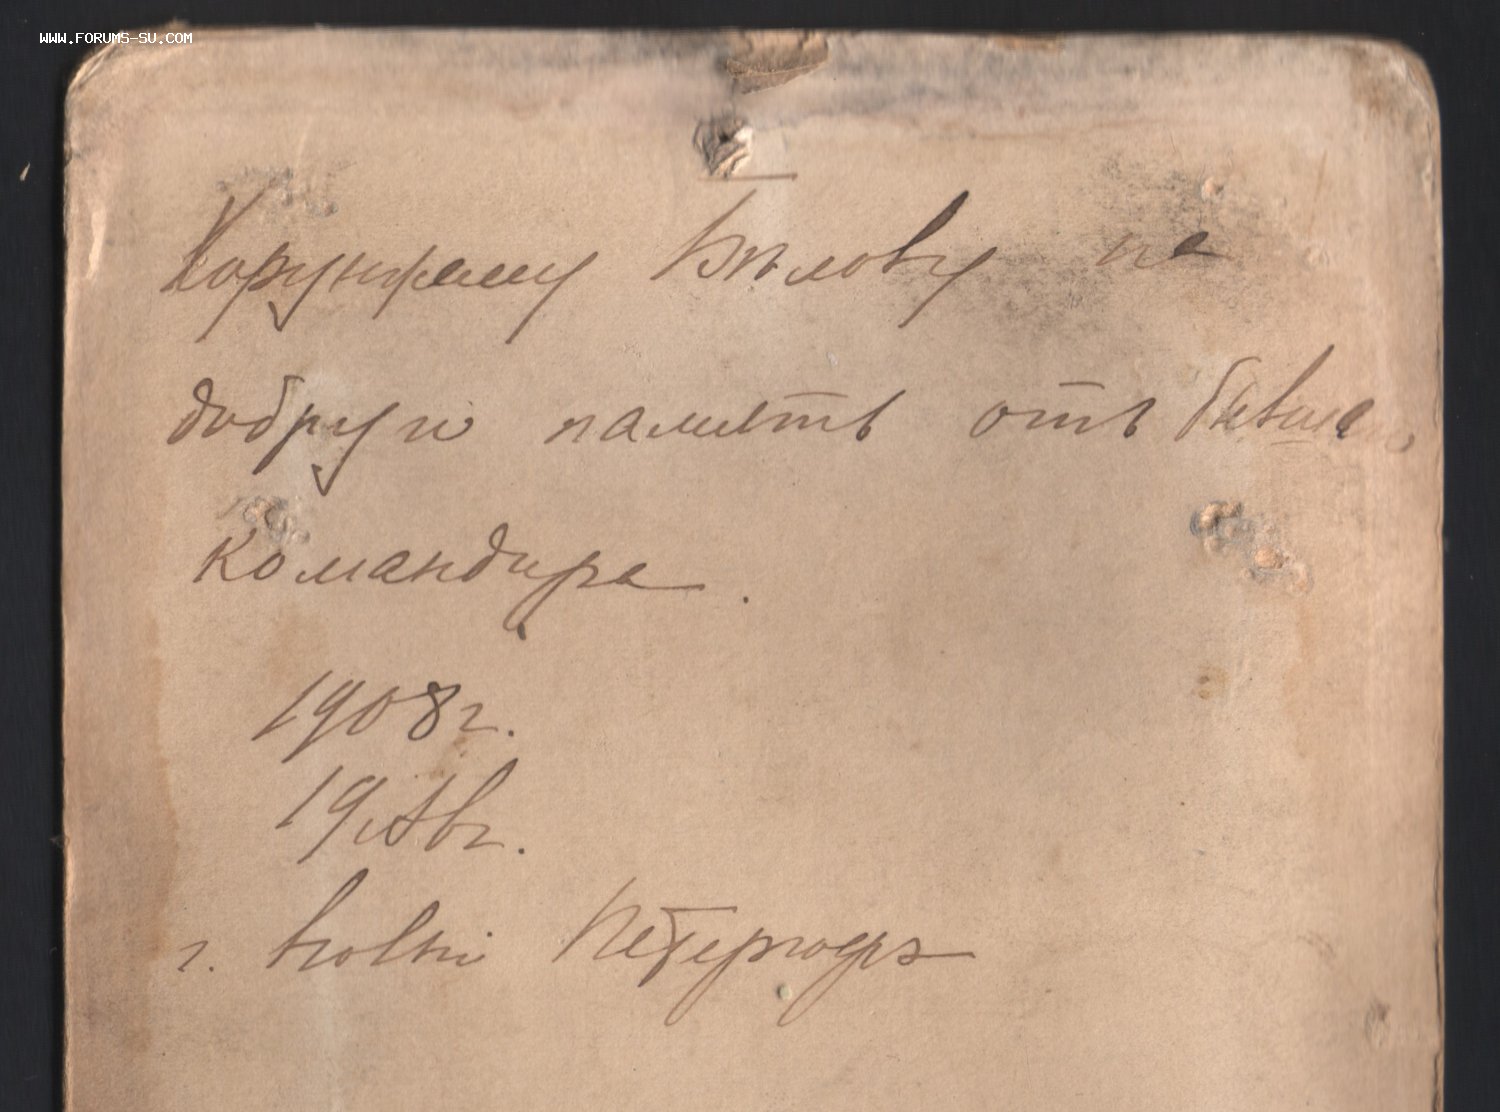 WWW.FORUMS-SU.COM
Хорунжему Бѣлову на
добрую память отъ бывшаго
командира.
1908 г.
19 Авг.
г. Новый Петергофъ